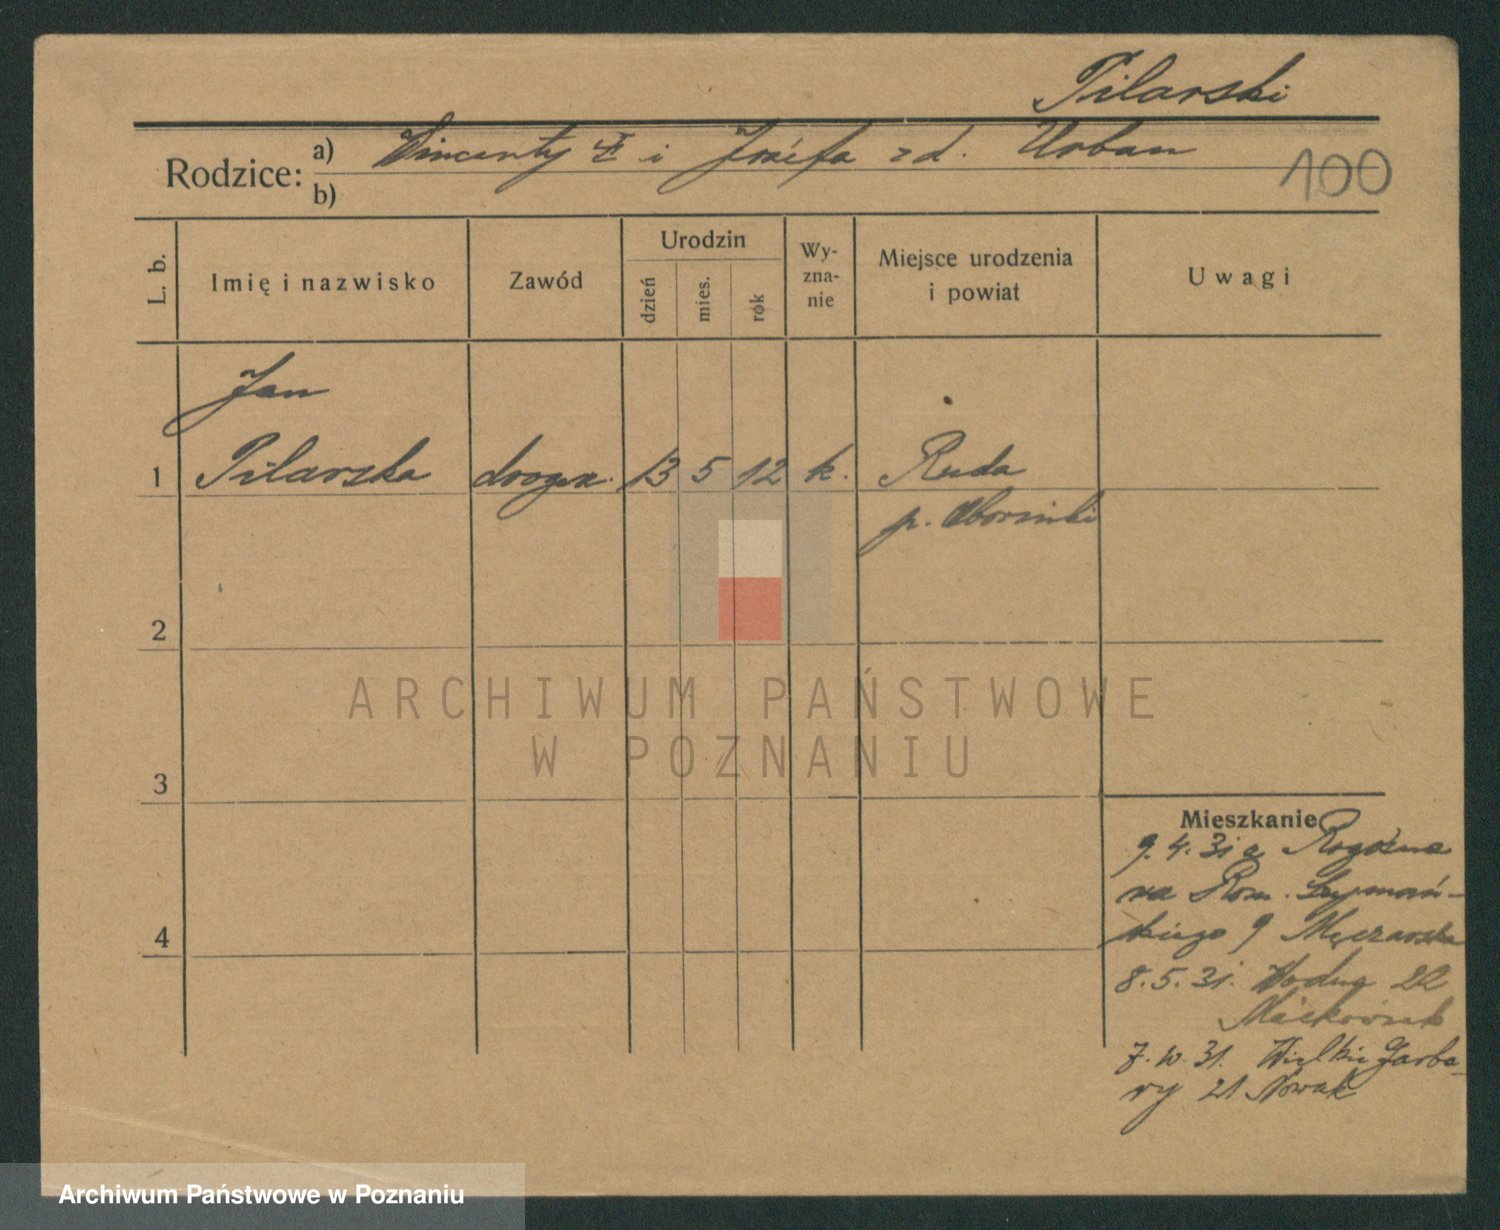 Pilarski
Rodzice:
a) Wincenty i Józefa z d. Urban
b)
100
L. b.
Imię i nazwisko
Zawód
Urodzin
dzień
mies.
rok
Wy-
zna-
nie
Miejsce urodzenia
i powiat
Uwagi
Jan
1 Pilarska droger. 13 5 12 k. Ruda
p. Obornicki
2
3
4
ARCHIWUM PAŃSTWOWE
W POZNANIU
Mieszkanie
9.4.31 z Rogoźna
na Rom. Szymań-
skiego 9 Męczarska
8.5.31. Wodna 22
Maćkowiak
7.10.31. Wielkie Garba-
ry 21 Nowak
Archiwum Państwowe w Poznaniu